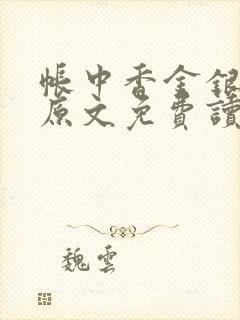 帳中香金銀
原文免費讀
魏雲